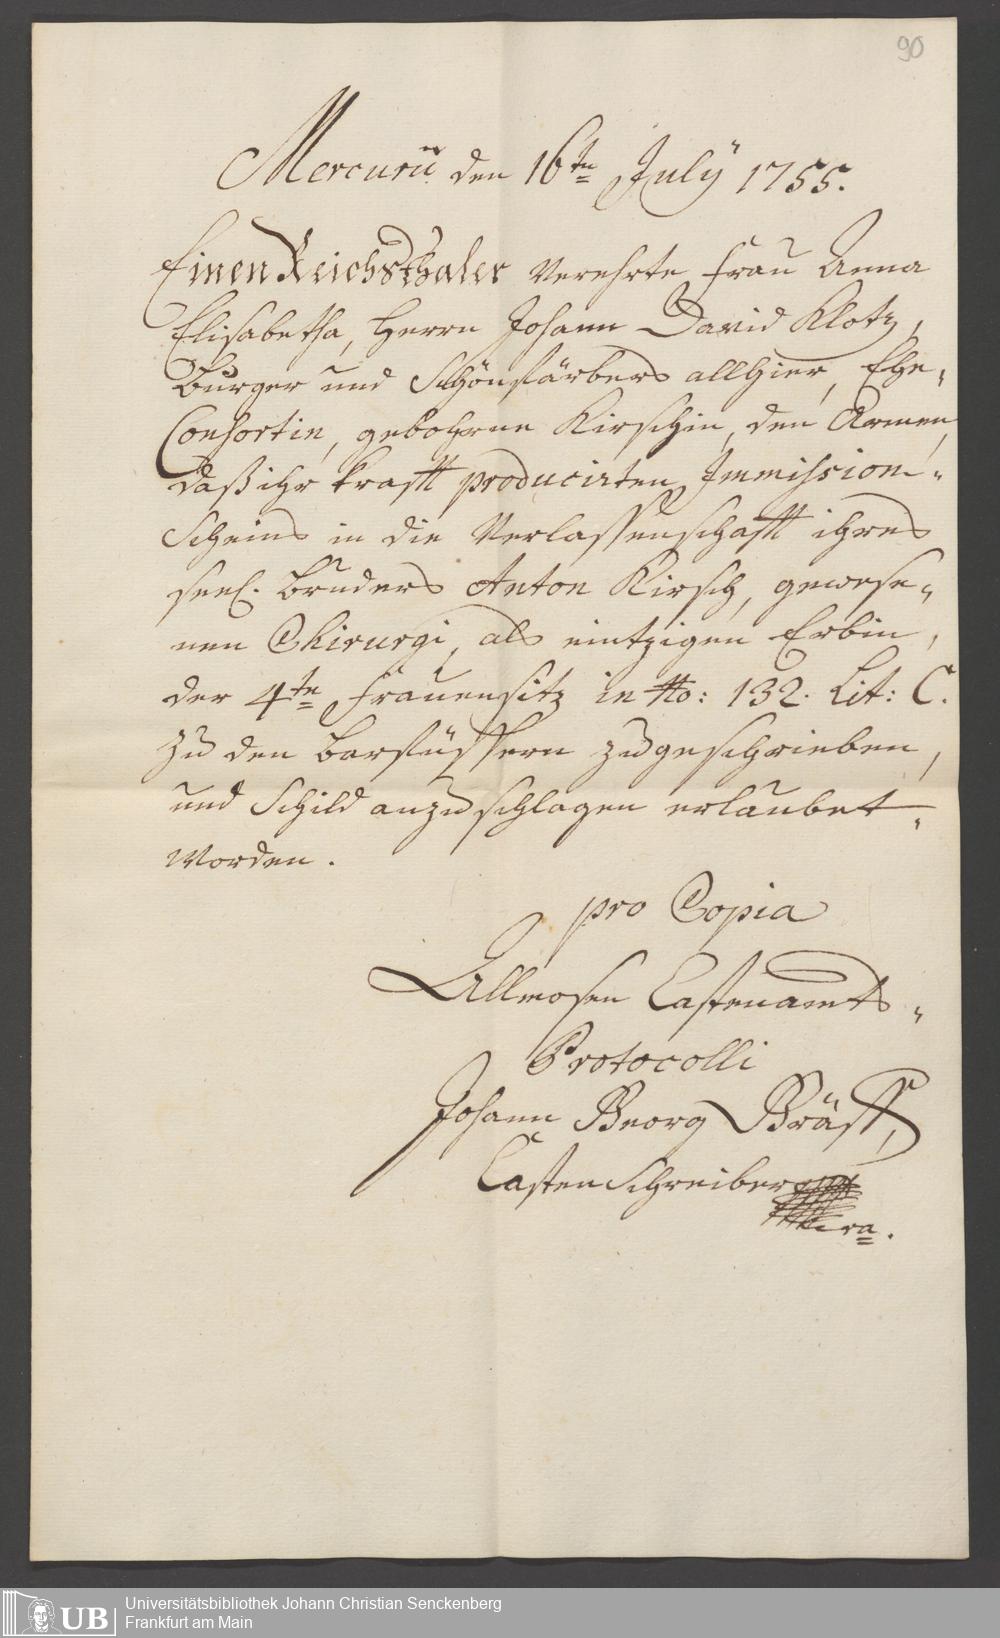 90
Mercurii den 16ten July 1755.
Einen Reichsthaler verehrte Frau Anna
Elisabetha, Herrn Johann David Klotz,
Burger und Schönfärbers allhier, Ehe-
Consortin, gebohrne Kirschin, den Armen,
daß ihr krafft producirten Immission-
Scheins in die Verlassenschafft ihres
seel. Bruders Anton Kirsch, gewese-
nen Chirurgi, als eintzigen Erbin,
der 4te Frauensitz in No: 132. Lit: C.
zu den Barfüssern zugeschrieben,
und Schild anzuschlagen erlaubet
worden.
pro Copia
Allmosen Castenamts-
Protocolli
Johann Georg Bräff,
Casten Schreiber
mra.
UB
Universitätsbibliothek Johann Christian Senckenberg
Frankfurt am Main